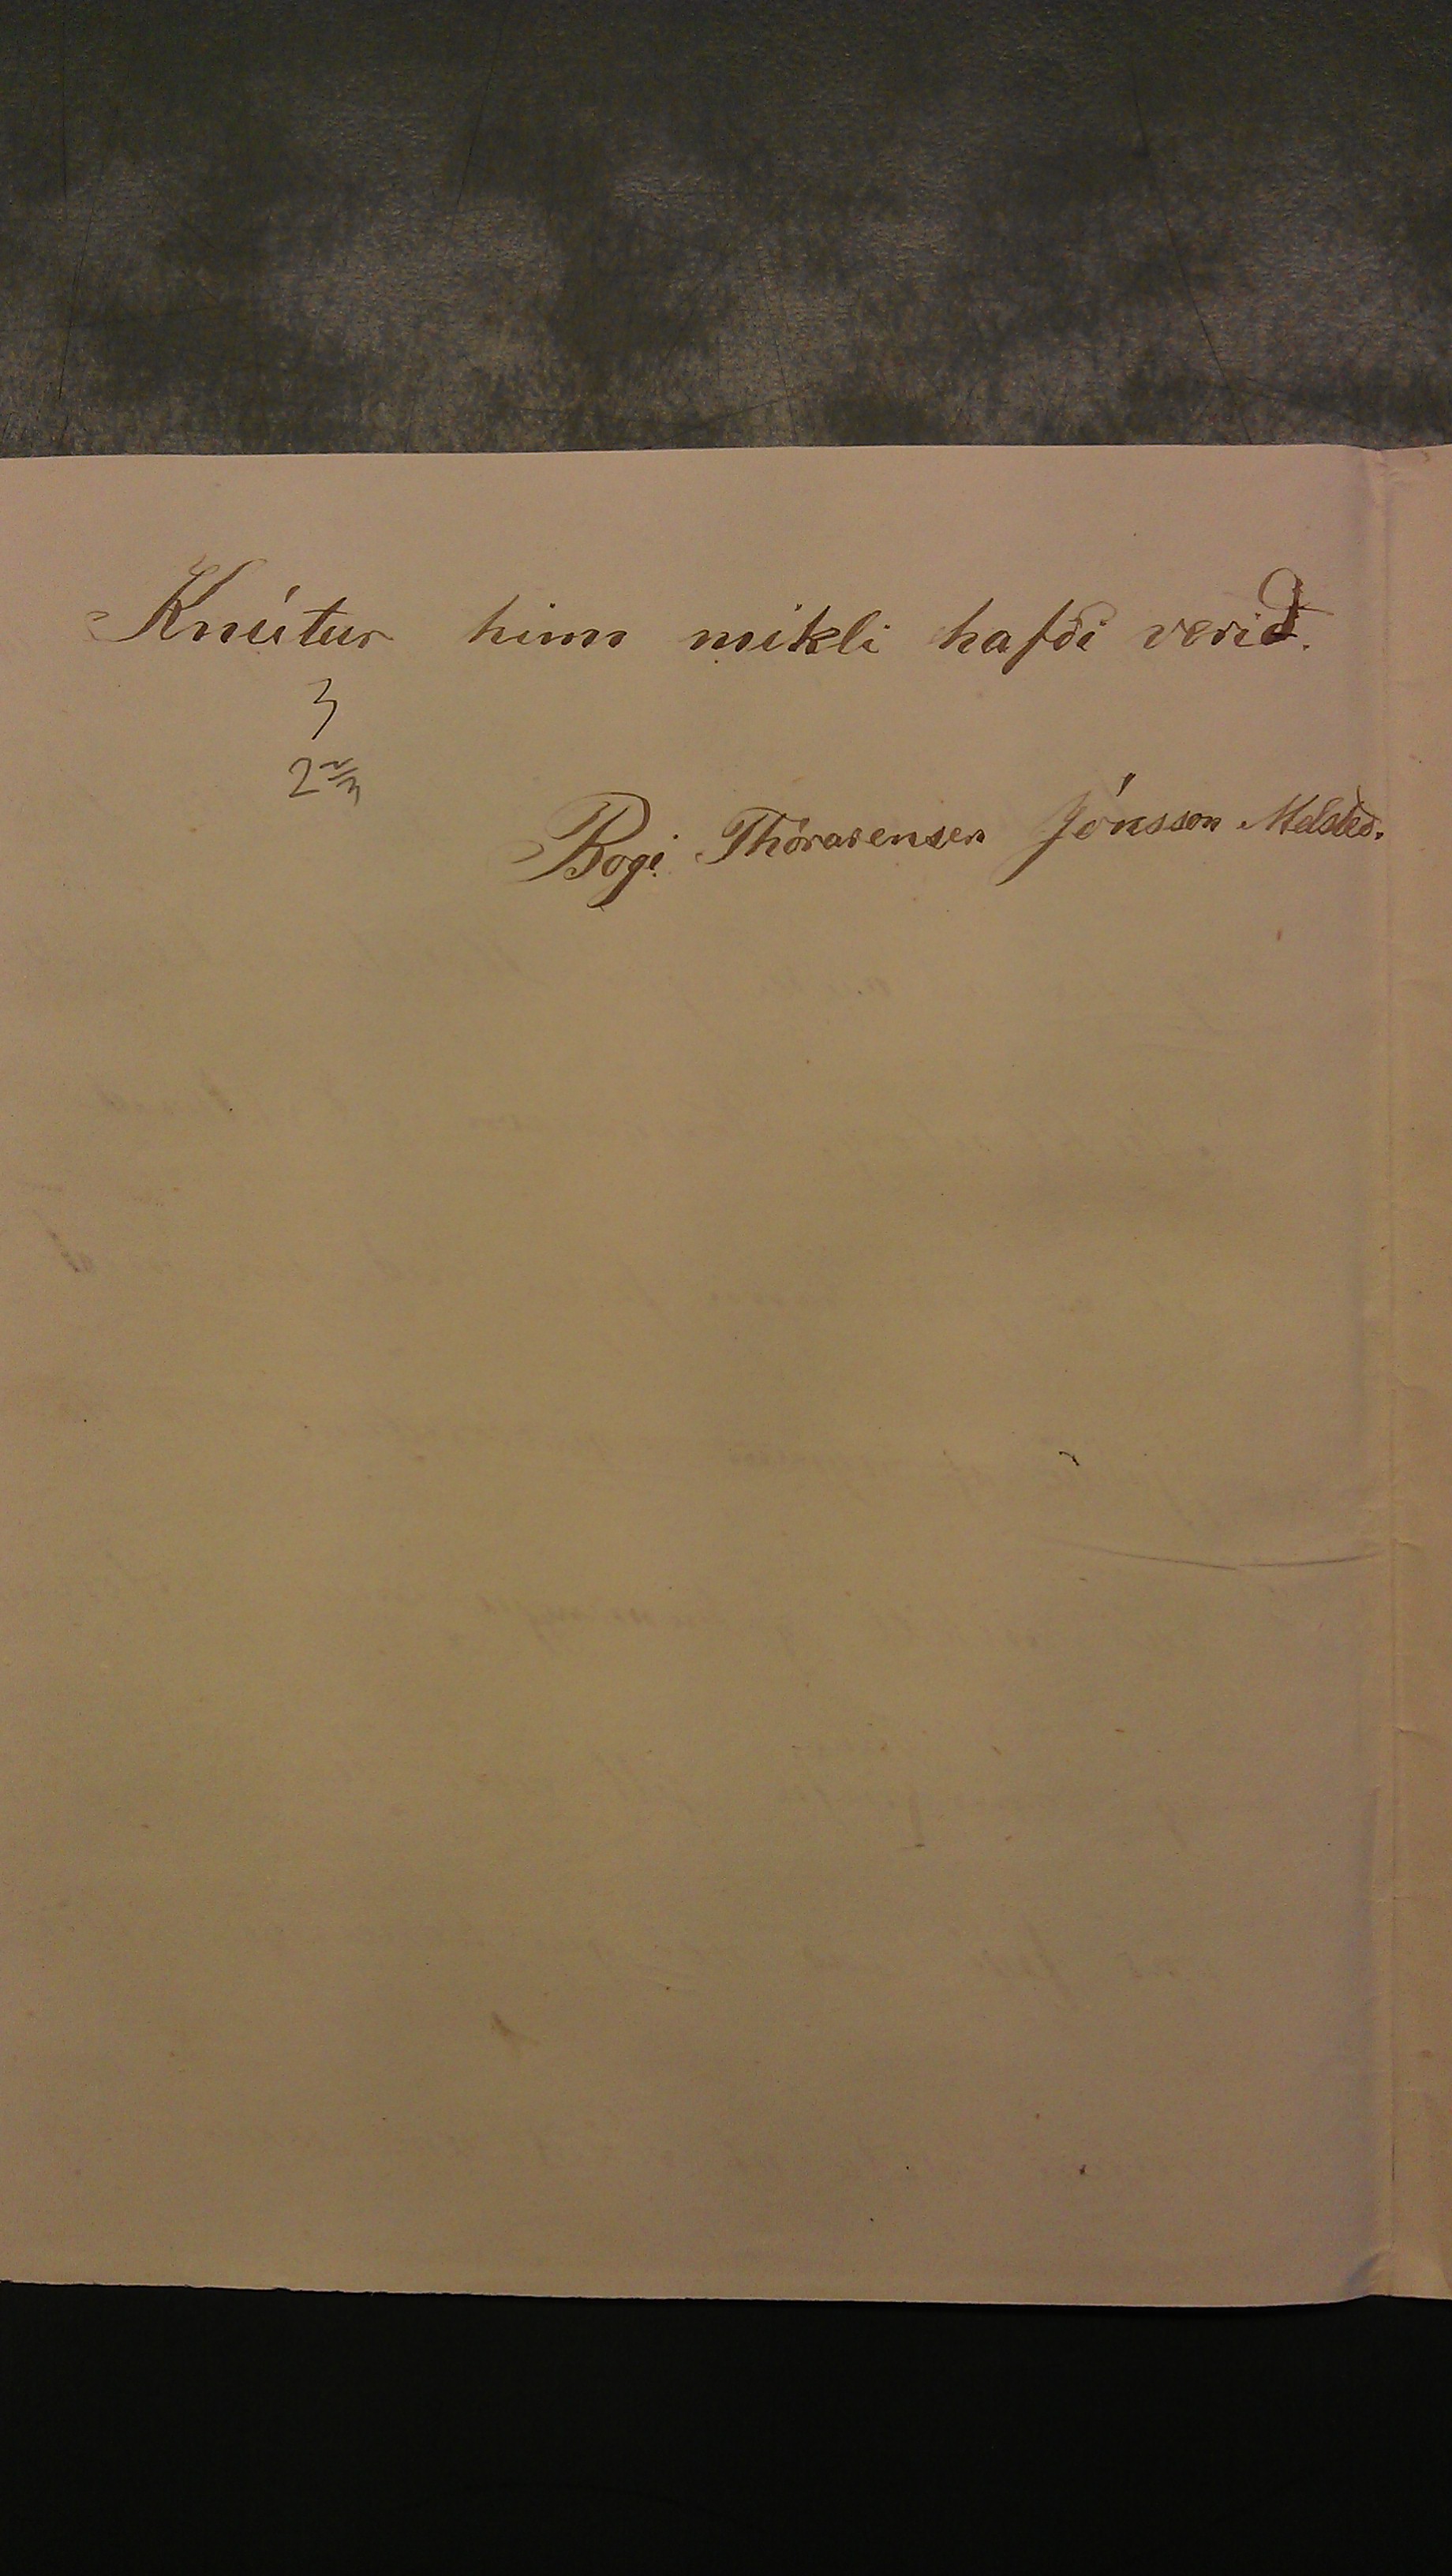 Knútur hinn mikli hafði verið.
3
2 2/3
Bogi Thórarensen Jónsson Melsteð.